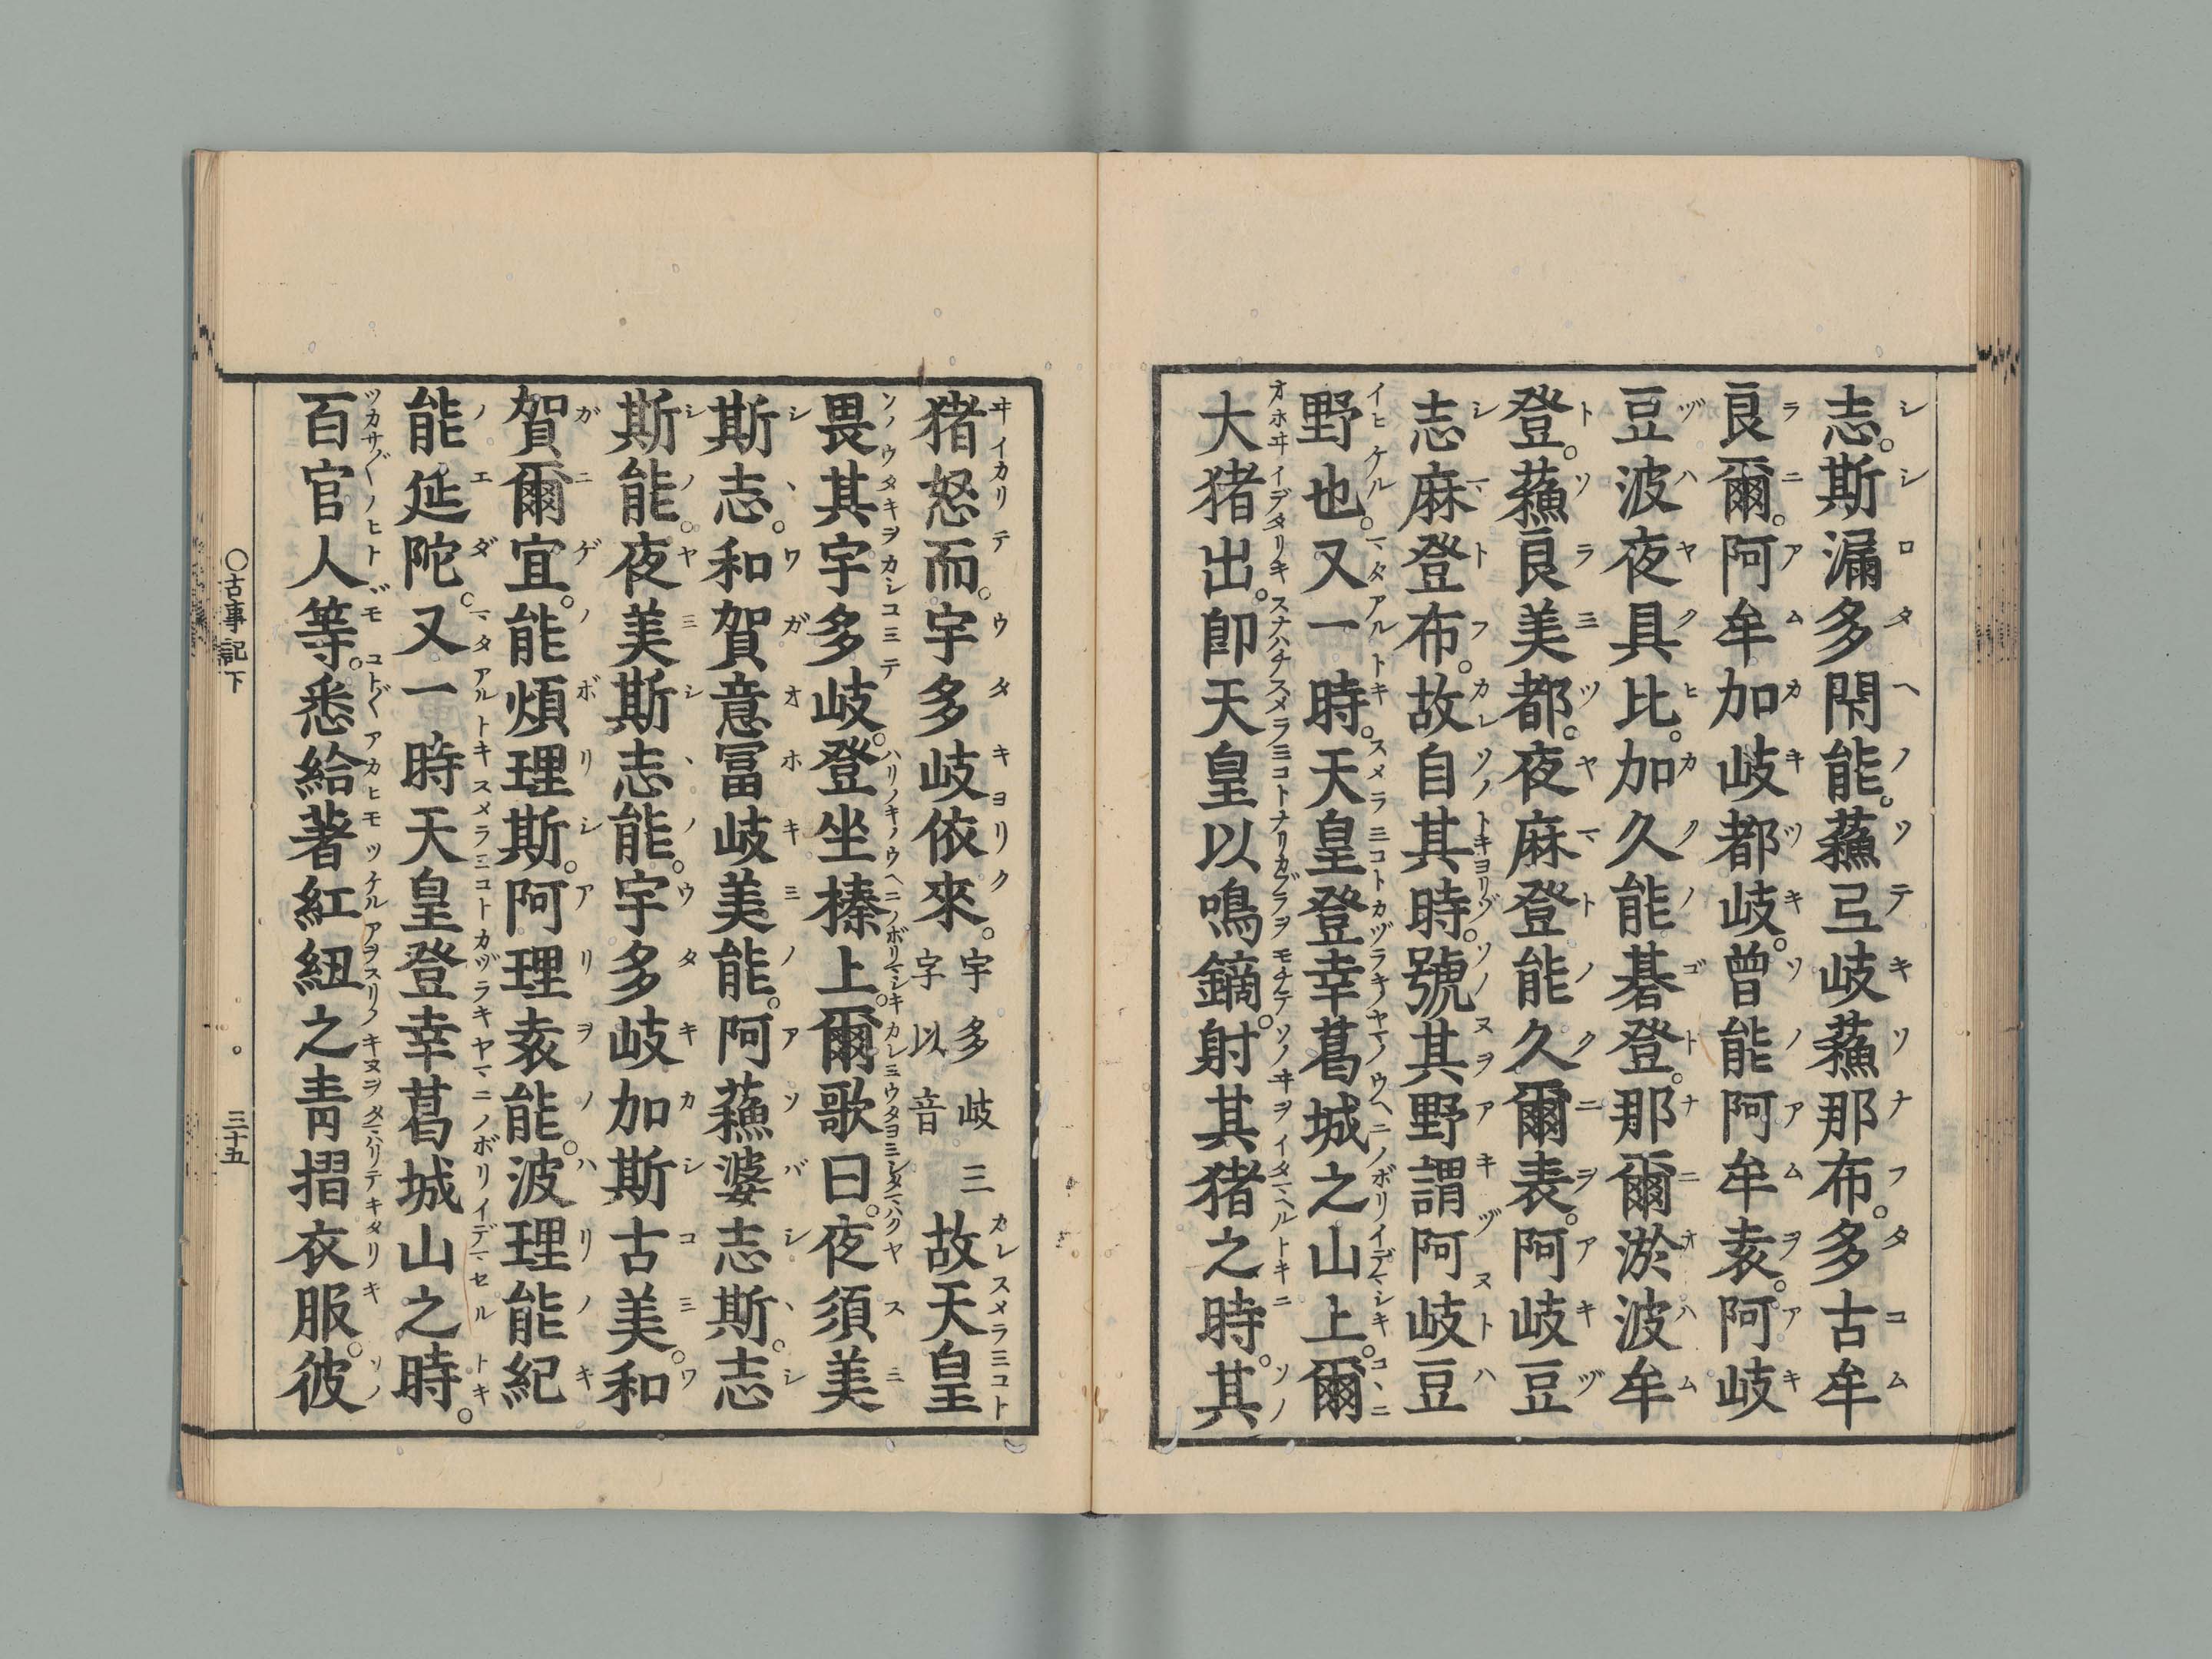 志。斯漏多閇能。蘓弖岐蘓那布。多古牟
良爾。阿牟加岐都岐。曾能阿牟袁。阿岐
豆波夜具比。加久能碁登。那爾淤波牟
登。蘓良美都。夜麻登能久爾袁。阿岐豆
志麻登布。故自其時。號其野謂阿岐豆
野也。又一時。天皇登幸葛城之山上。爾
大猪出。卽天皇以鳴鏑。射其猪之時。其
猪怒而。宇多岐依來。宇多岐三字以音故天皇
畏其宇多岐。登坐榛上。爾歌曰。夜須美
斯志。和賀意富岐美能。阿蘓婆志斯。志
斯能。夜美斯志能。宇多岐加斯古美。和
賀爾宜。能煩理斯。阿理袁能。波理能紀
能延陀。又一時天皇登幸葛城山之時。
百官人等。悉給著紅紐之靑摺衣服。彼
○古事記下 三十五